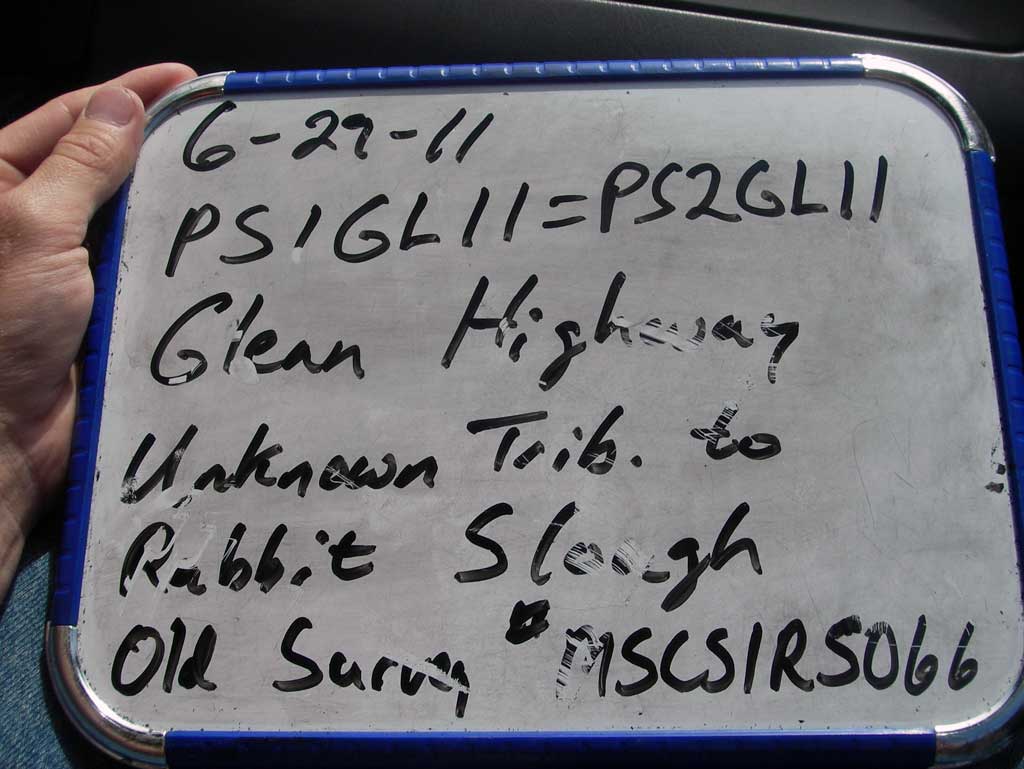 6-29-11
PS1GL11=PS2GL11
Glenn Highway
Unknown Trib. to
Rabbit Slough
Old Survey # MSCS1RS066